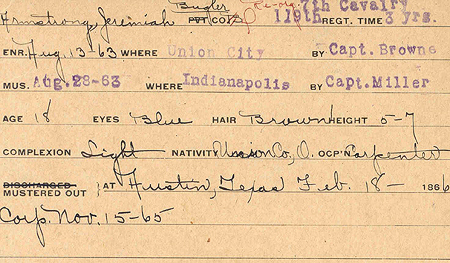 Bugler 7th Cavalry
Armstrong, Jeremiah PVT CO. 119th REGT. TIME 3 yrs.
ENR. Aug. 13-63 WHERE Union City BY Capt. Browne
MUS. Aug. 28-63 WHERE Indianapolis BY Capt. Miller
AGE 18 EYES Blue HAIR Brown HEIGHT 5-7
COMPLEXION Light NATIVITY Union Co, O. OCP'N Carpenter
DISCHARGED
MUSTERED OUT } AT Austin, Texas Feb. 18- 1866
Corp. Nov. 15-65